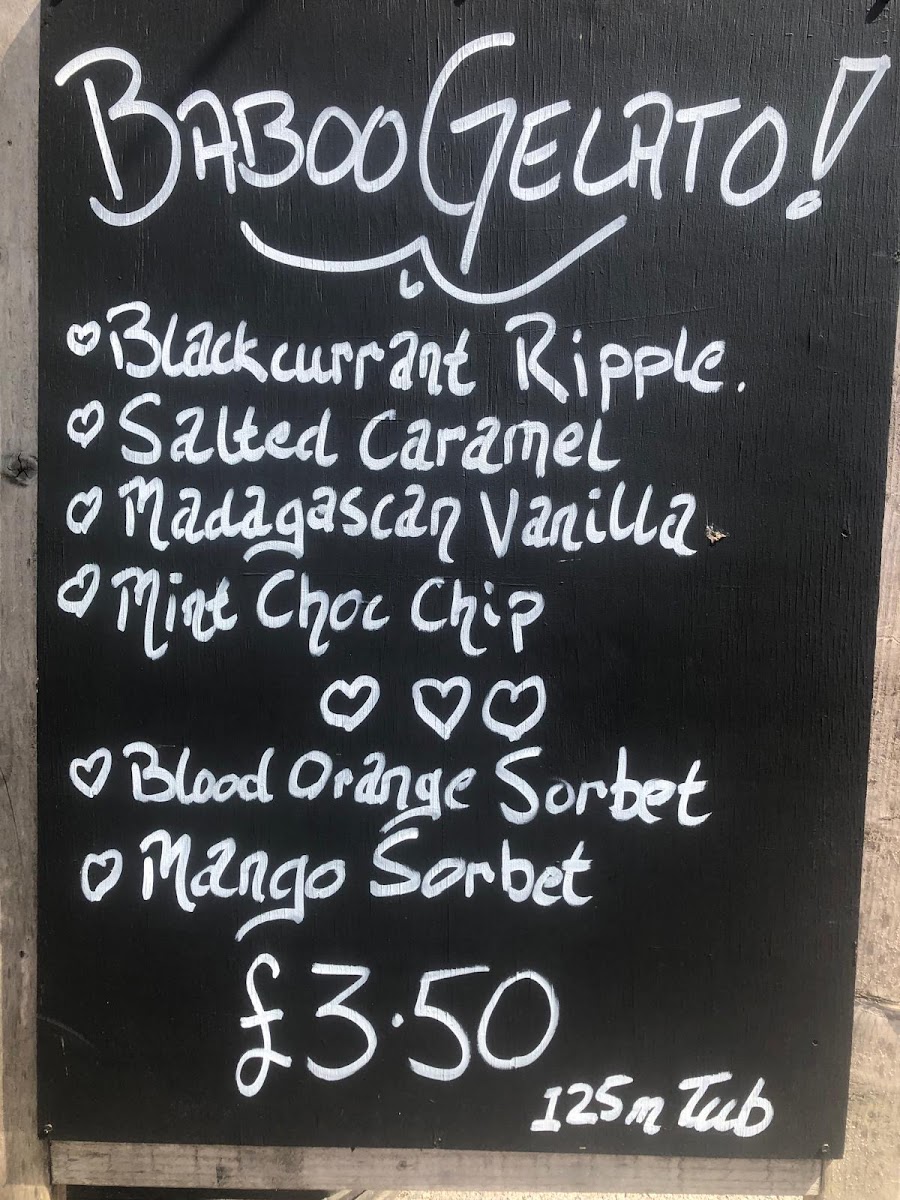 BABOO GELATO!
Blackcurrant Ripple.
Salted Caramel
Madagascan Vanilla
Mint Choc Chip
Blood Orange Sorbet
Mango Sorbet
£3.50
125m Tub